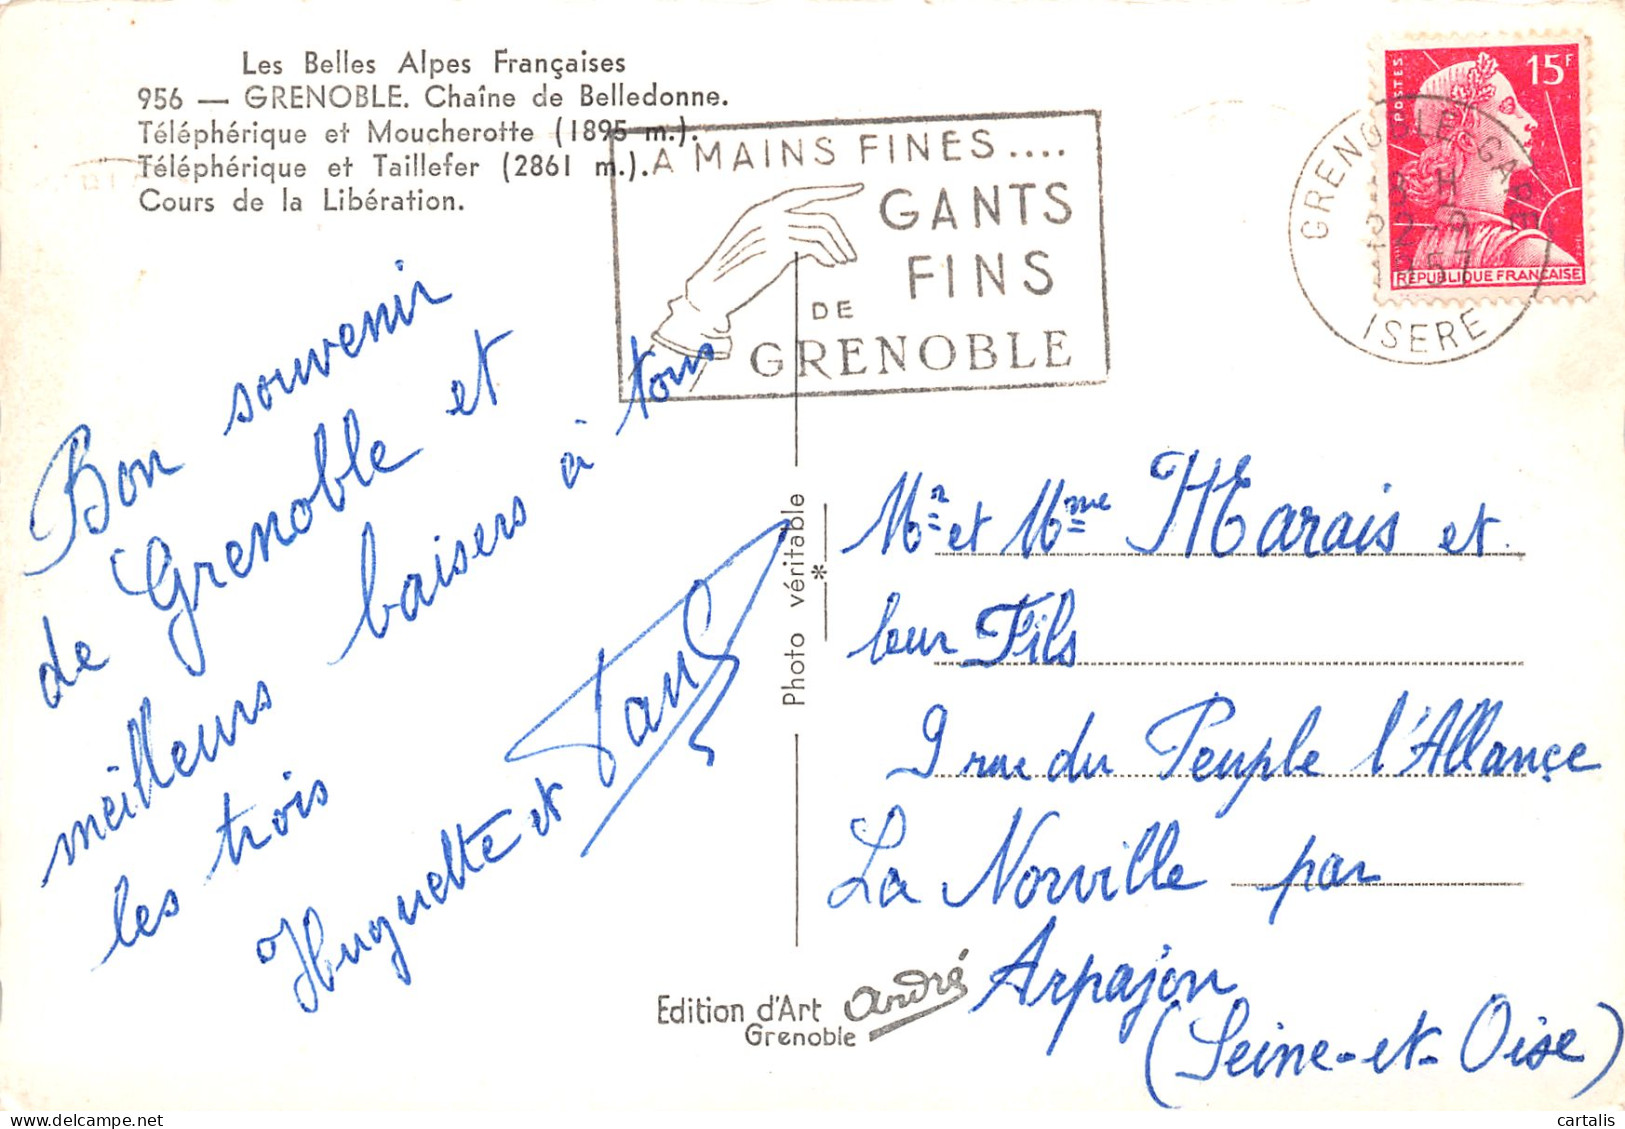 Les Belles Alpes Françaises
956 — GRENOBLE. Chaîne de Belledonne.
Téléphérique et Moucherotte (1895 m.).
Téléphérique et Taillefer (2861 m.).
Cours de la Libération.
A MAINS FINES....
GANTS
FINS
DE
GRENOBLE
POSTES
15F
REPUBLIQUE FRANÇAISE
GRENOBLE GARE
ISERE
Bon souvenir
de Grenoble et
meilleurs baisers à tous
les trois
Huguette et Paul
Photo véritable
*
Mr et Mme Marais et
leur Fils
9 rue du Peuple l'Allançe
La Norville par
Arpajon
(Seine-et-Oise)
Edition d'Art André
Grenoble
cartalis